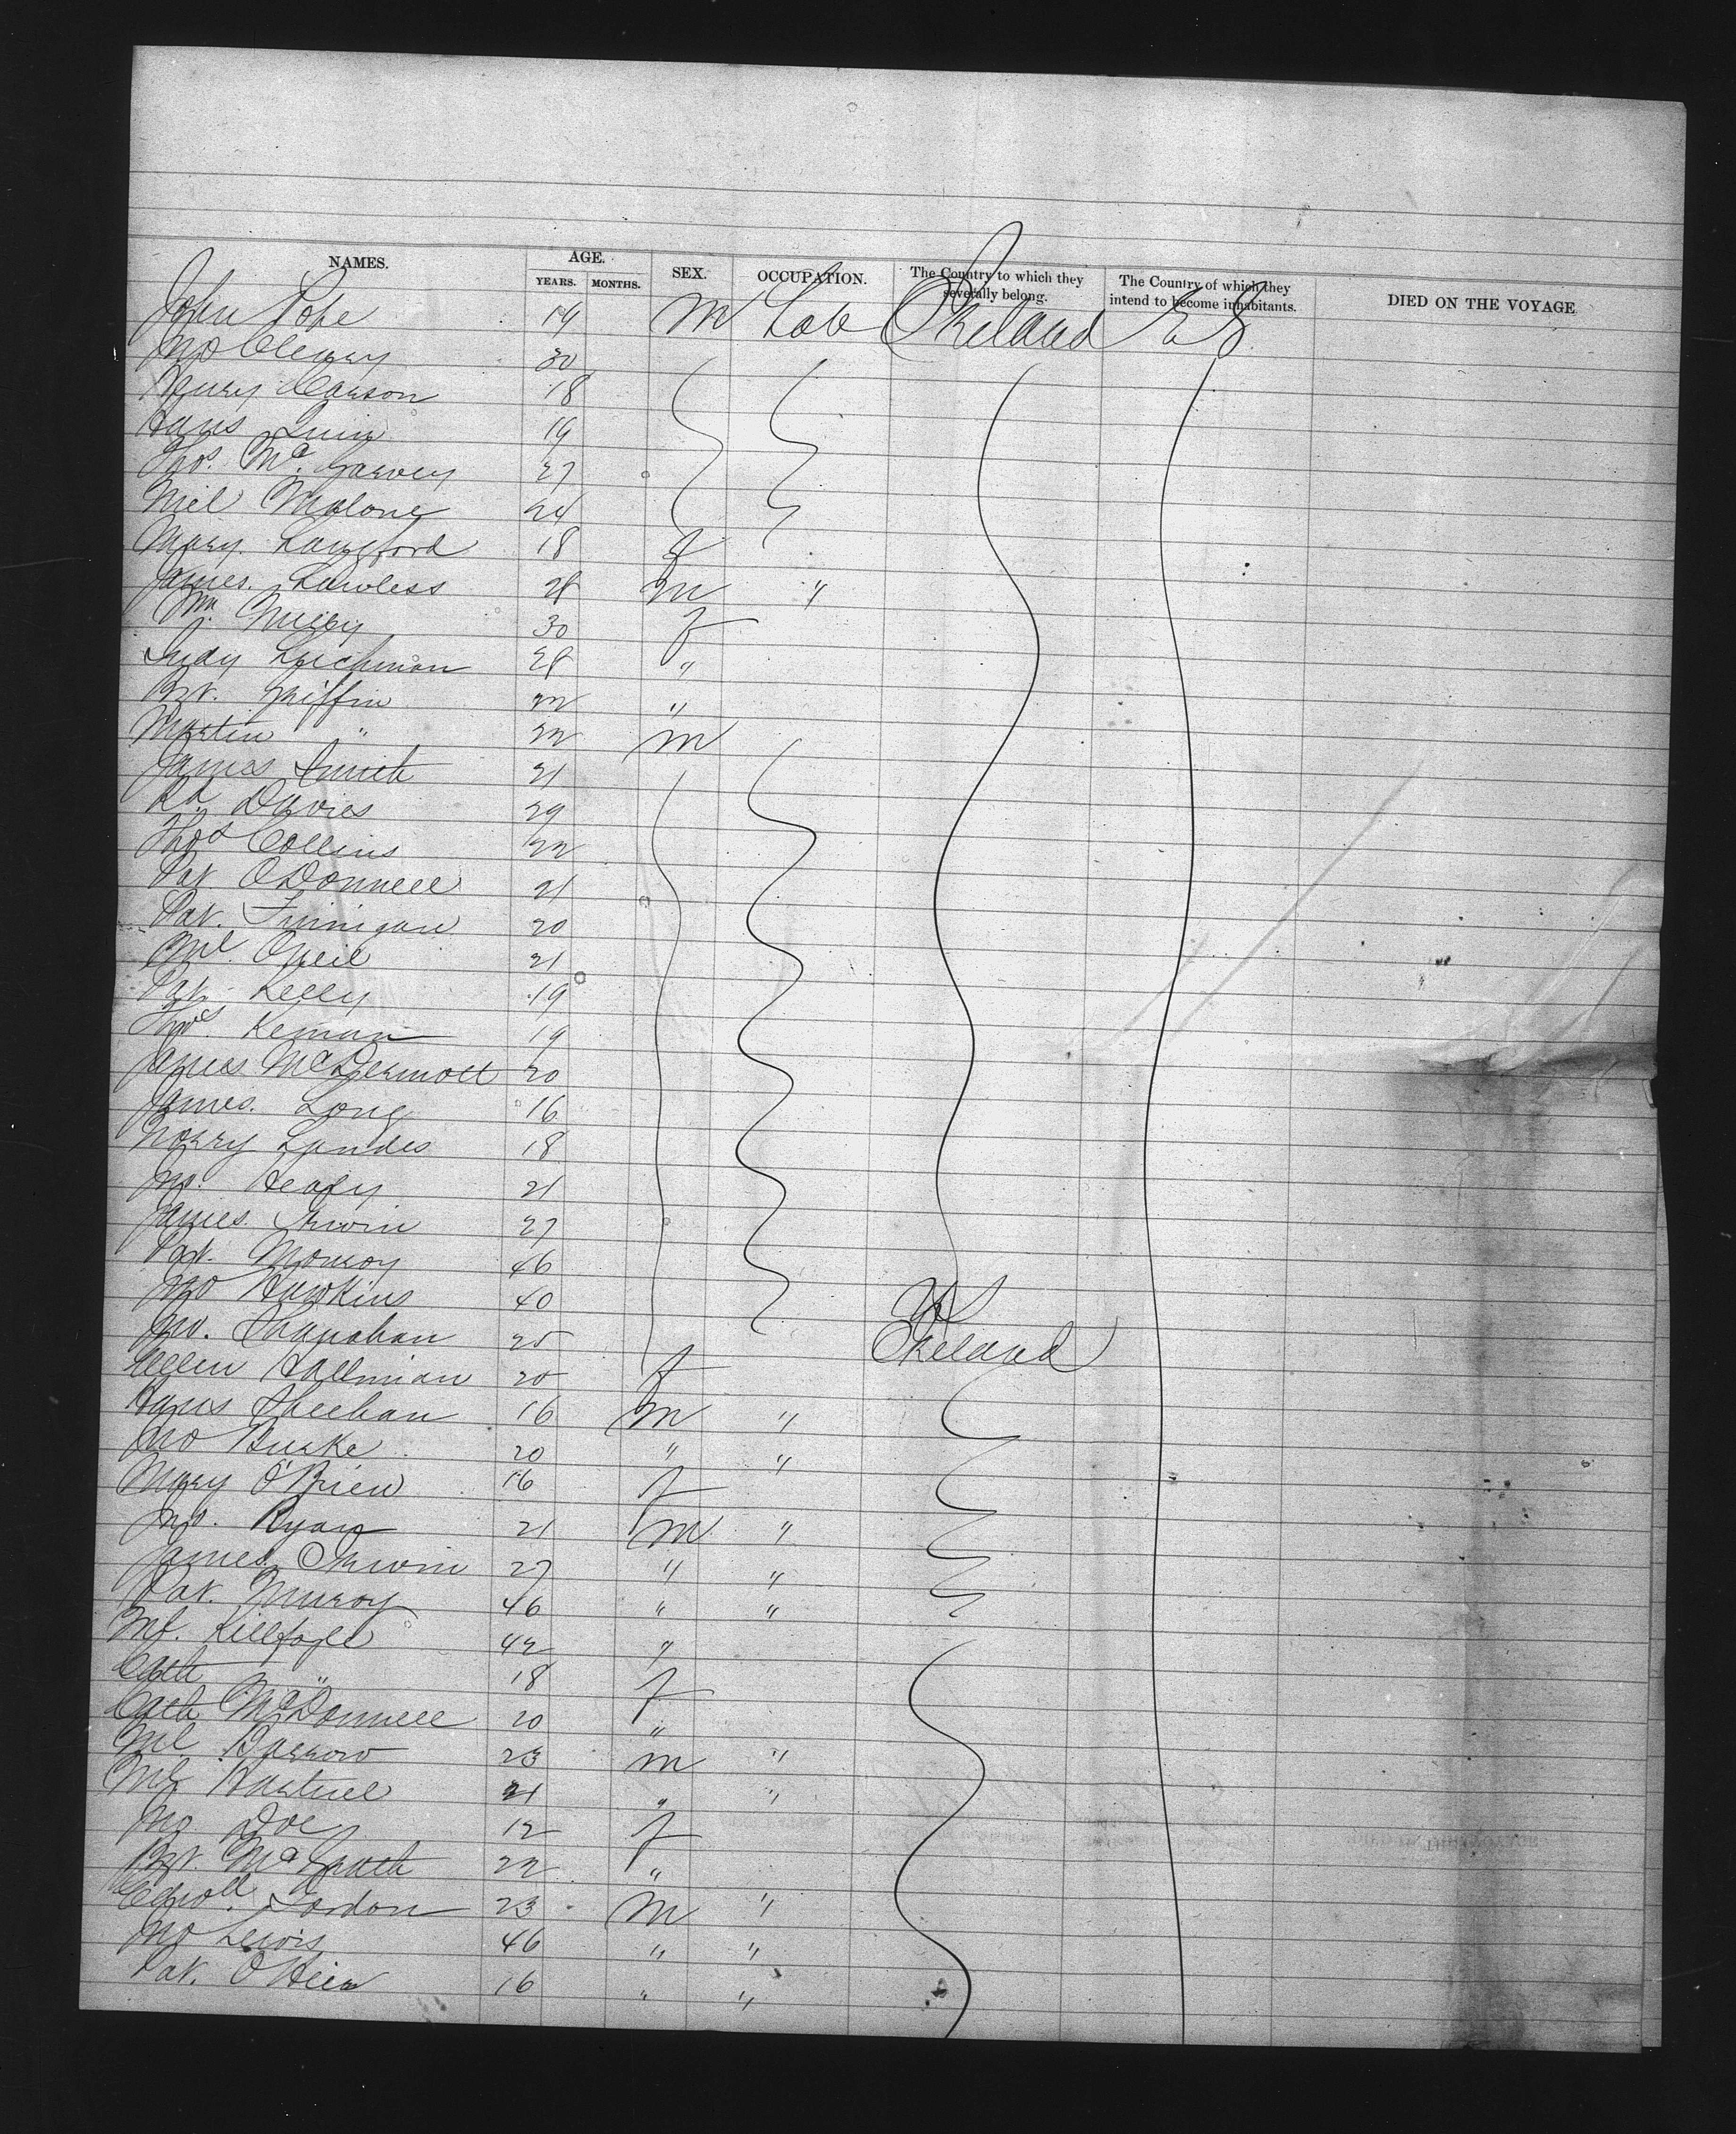 NAMES. AGE. SEX. OCCUPATION. The Country to which they severally belong. The Country of which they intend to become inhabitants. DIED ON THE VOYAGE
YEARS. MONTHS.
John Pope 19 M Lab Ireland U S
Jno Cleary 30
Henry Carson 18
Hans Quin 19
Thos. Mc. Garvey 27
Miel Malone 24
Mary. Langford 18 f
James. Lawless 28 M "
30 f
Judy 28 "
Bt. Griffin 22 "
Martin " 22 M
James Smith 21
Rd Davies 29
Thos Collins 22
Pat. O Donnell 21
Pat. Finnigan 20
Ml. Oneil 21
Pat. Kelly 19
Thos Keman 19
James McDermott 20
James. Long 16
Landes 18
Jno. Healy 21
James. Irwin 27
Pat. Monroy 46
Jno Hawkins 40 U S
Jno. Shanahan 25 Ireland
Ellen Hallinian 20 f
Hans Sheehan 16 M "
Jno Burke 20 " "
Mary O'Brien 16 f
Jno. Ryan 21 M "
James. Irwin 27 " "
Pat. Muroy 46 " "
Ml. 42 "
Cath " 18 f
Cath McDonnell 20 "
Ml. Barrow 23 M "
Ml 21 " "
Doe 12 f
Bt. McGrath 22 "
Gordon 23 M "
Jno Lewis 46 " "
Pat. 16 " "